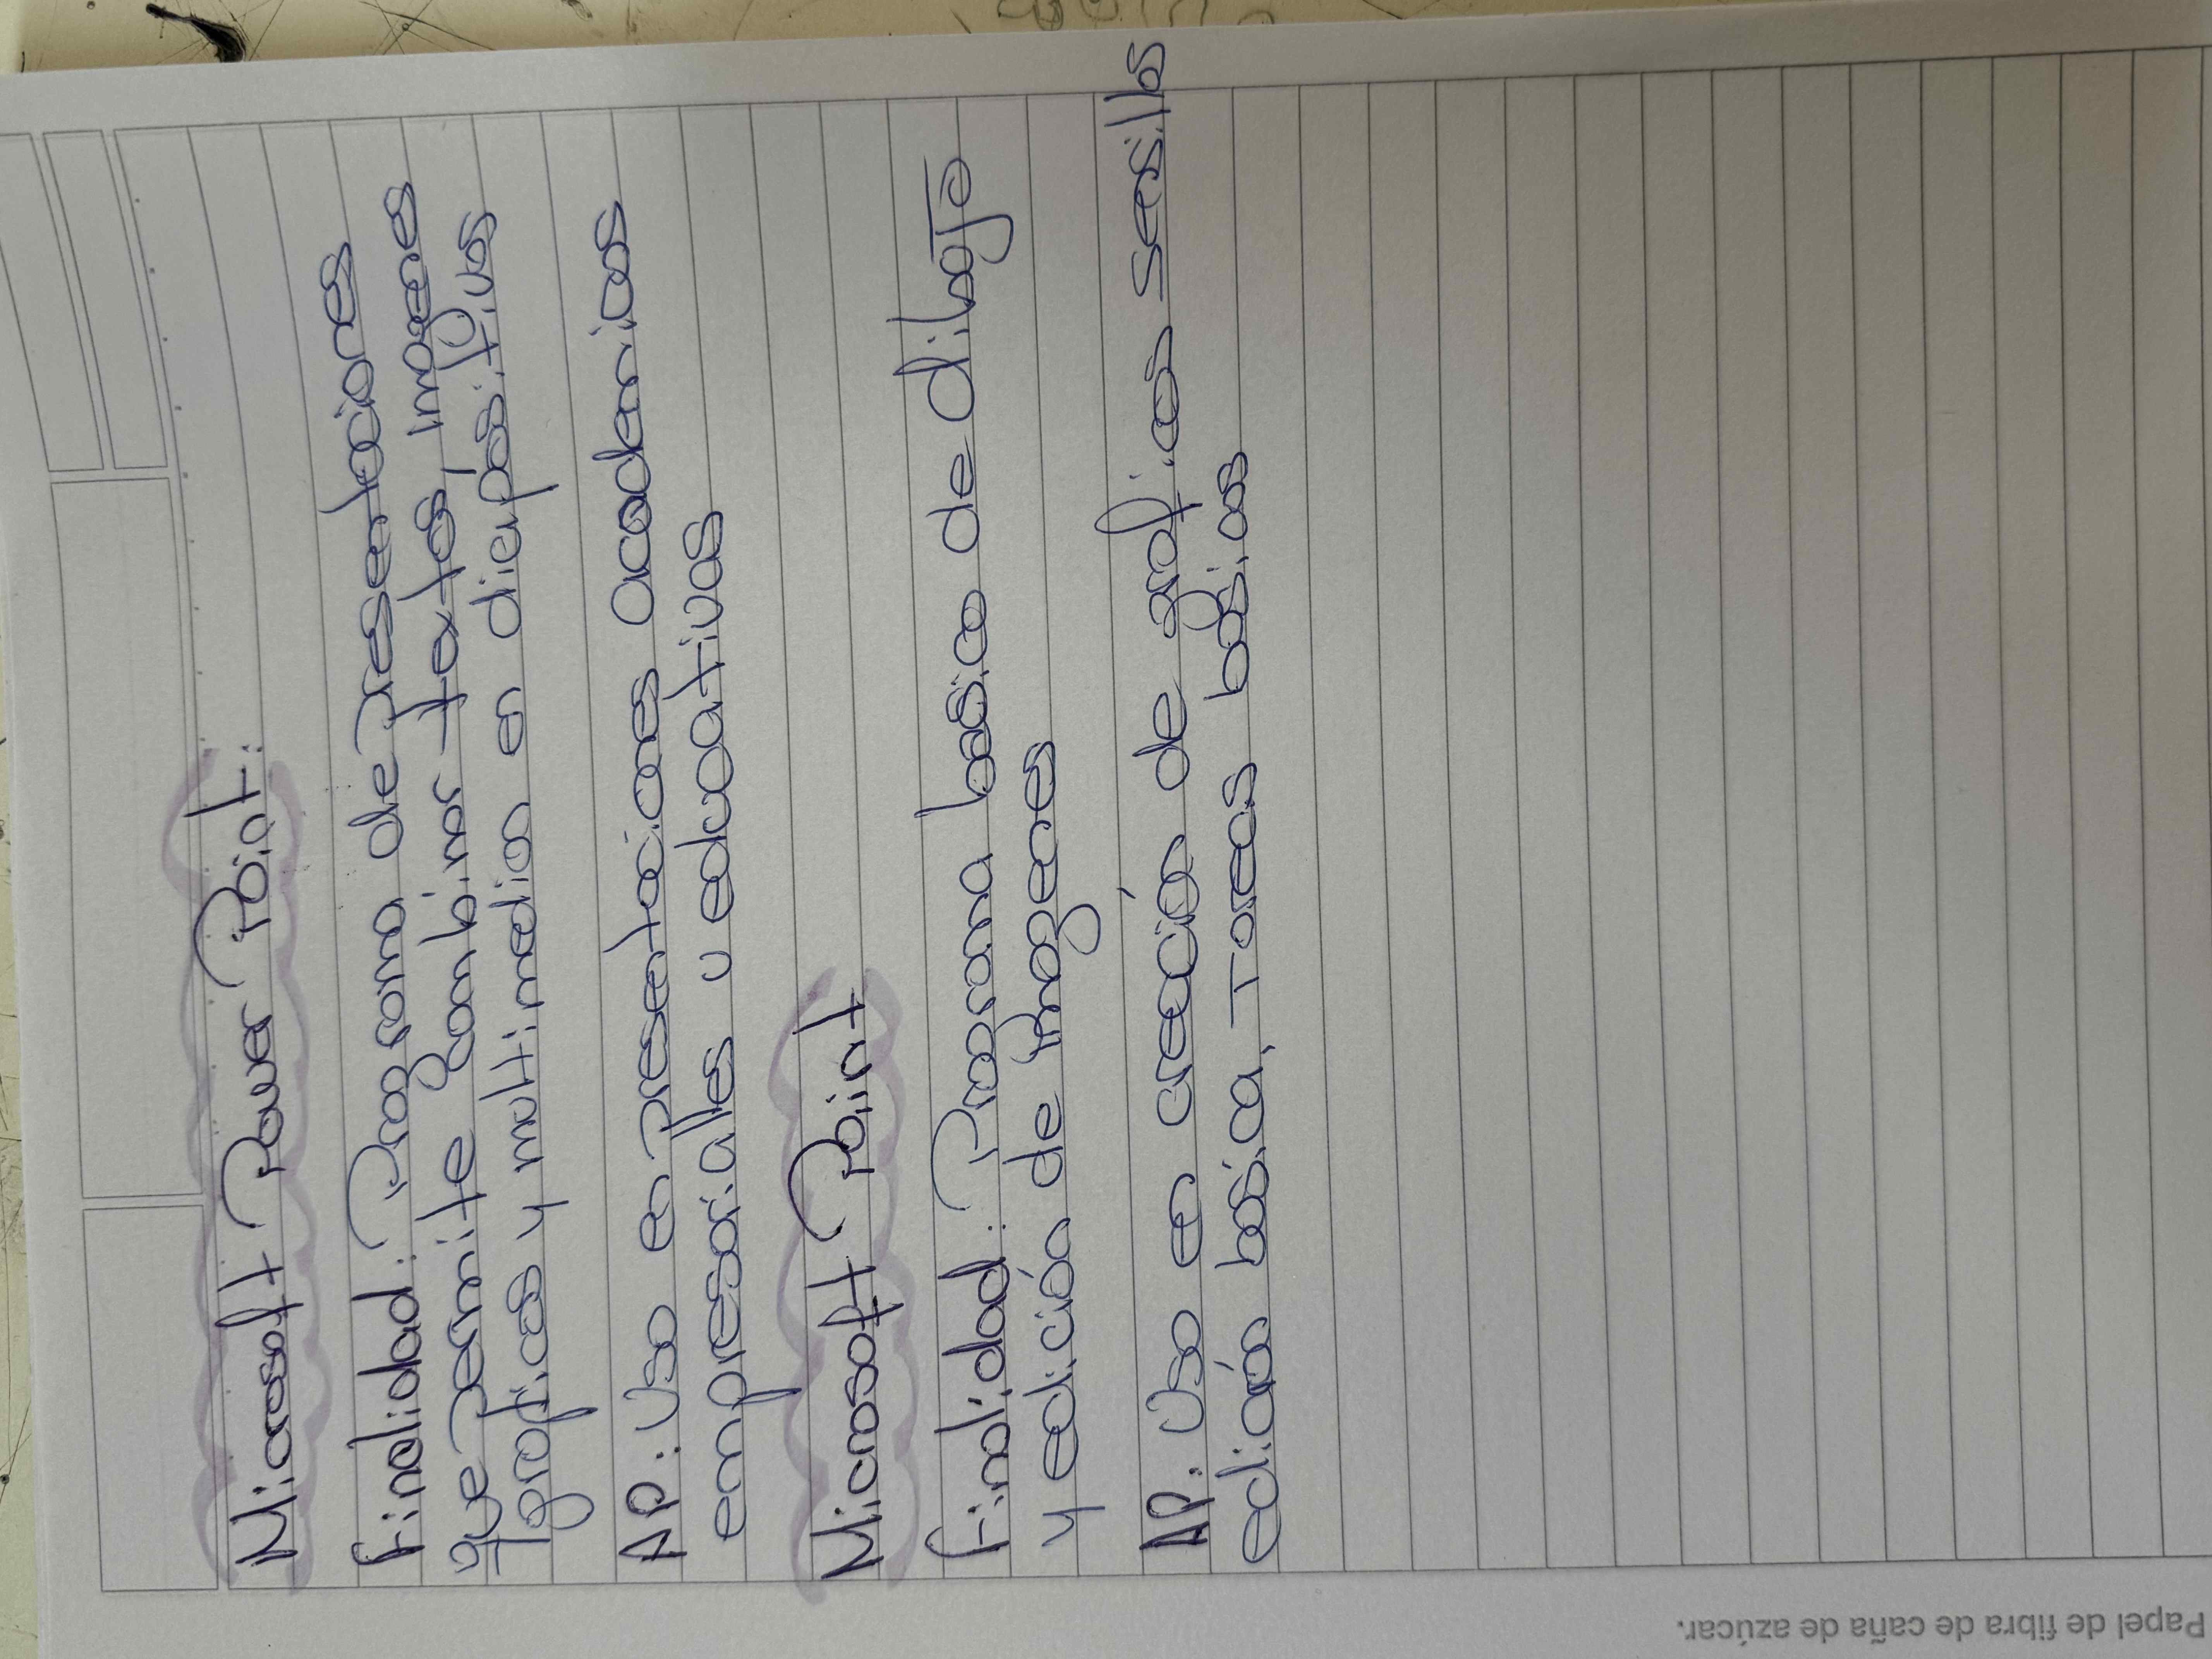 Microsoft Power Point:
Finalidad: Programa de presentaciones
que permite combinar textos, imagenes
graficos y multimedia en diapositivas
AP: Uso en presentaciones academicas
empresariales y educativas
Microsoft Point
Finalidad: Programa basico de dibujo
y edición de imagenes
AP: Uso en creación de graficos sensillos
edición básica, Tareas básicas
Papel de fibra de caña de azúcar.